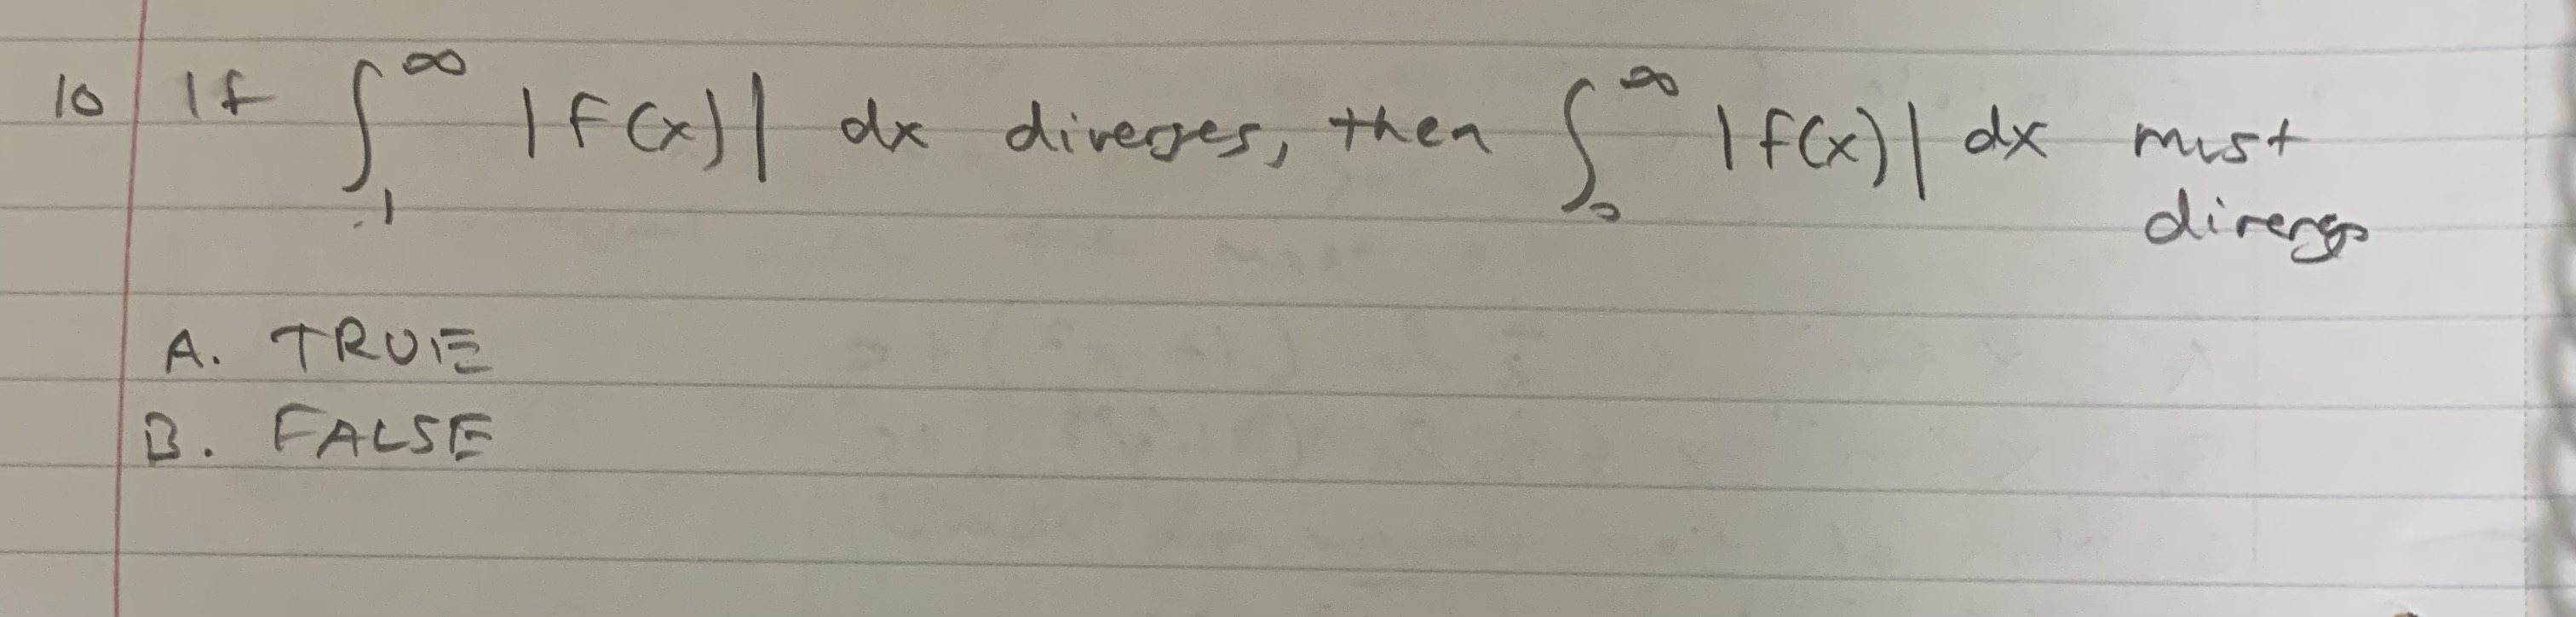 10 If ∫₁^∞ |f(x)| dx diverges, then ∫₀^∞ |f(x)| dx must
diverge
A. TRUE
B. FALSE